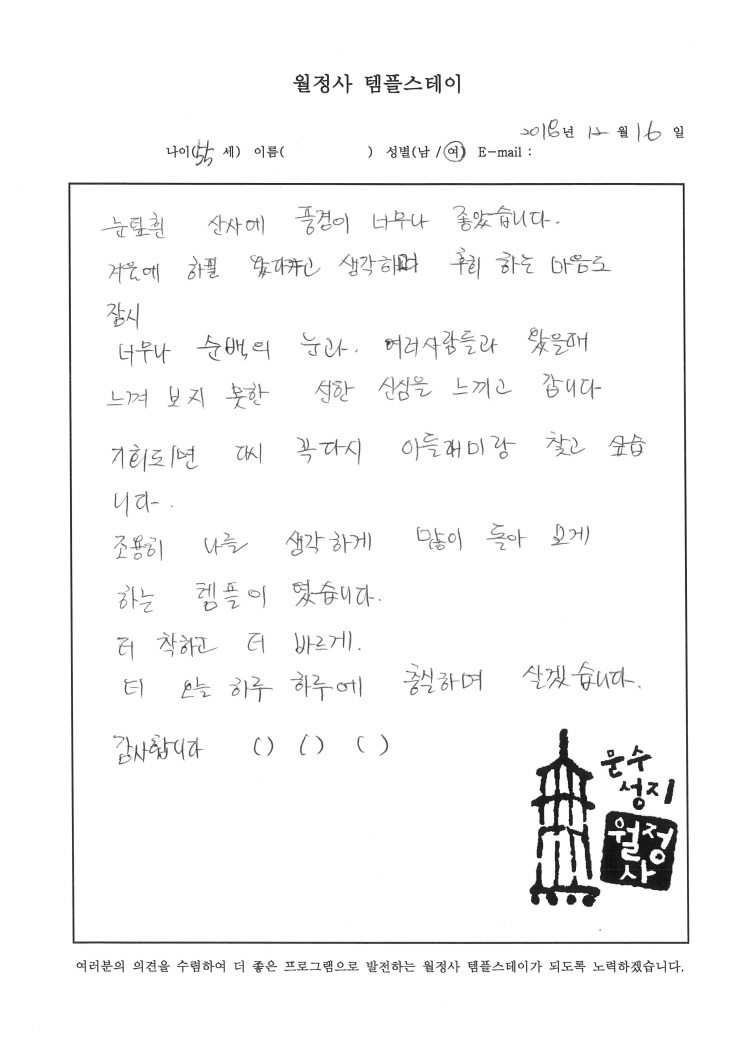 월정사 템플스테이
2018년 12 월 16 일
나이(55 세) 이름( ) 성별(남 / 여) E-mail :
눈덮흰 산사에 풍경이 너무나 좋았습니다.
겨울에 하필 왔다고 생각하며 후회 하는 마음도
잠시
너무나 순백의 눈과. 여러사람들과 왔을때
느껴 보지 못한 선한 신심을 느끼고 갑니다
기회되면 다시 꼭다시 아들래미랑 찾고 싶습
니다.
조용히 나를 생각하게 많이 돌아 보게
하는 템플이 였습니다.
더 착하고 더 바르게.
더 오늘 하루 하루에 충실하며 살겠습니다.
감사합니다 () () ()
문수
성지
월정
사
여러분의 의견을 수렴하여 더 좋은 프로그램으로 발전하는 월정사 템플스테이가 되도록 노력하겠습니다.